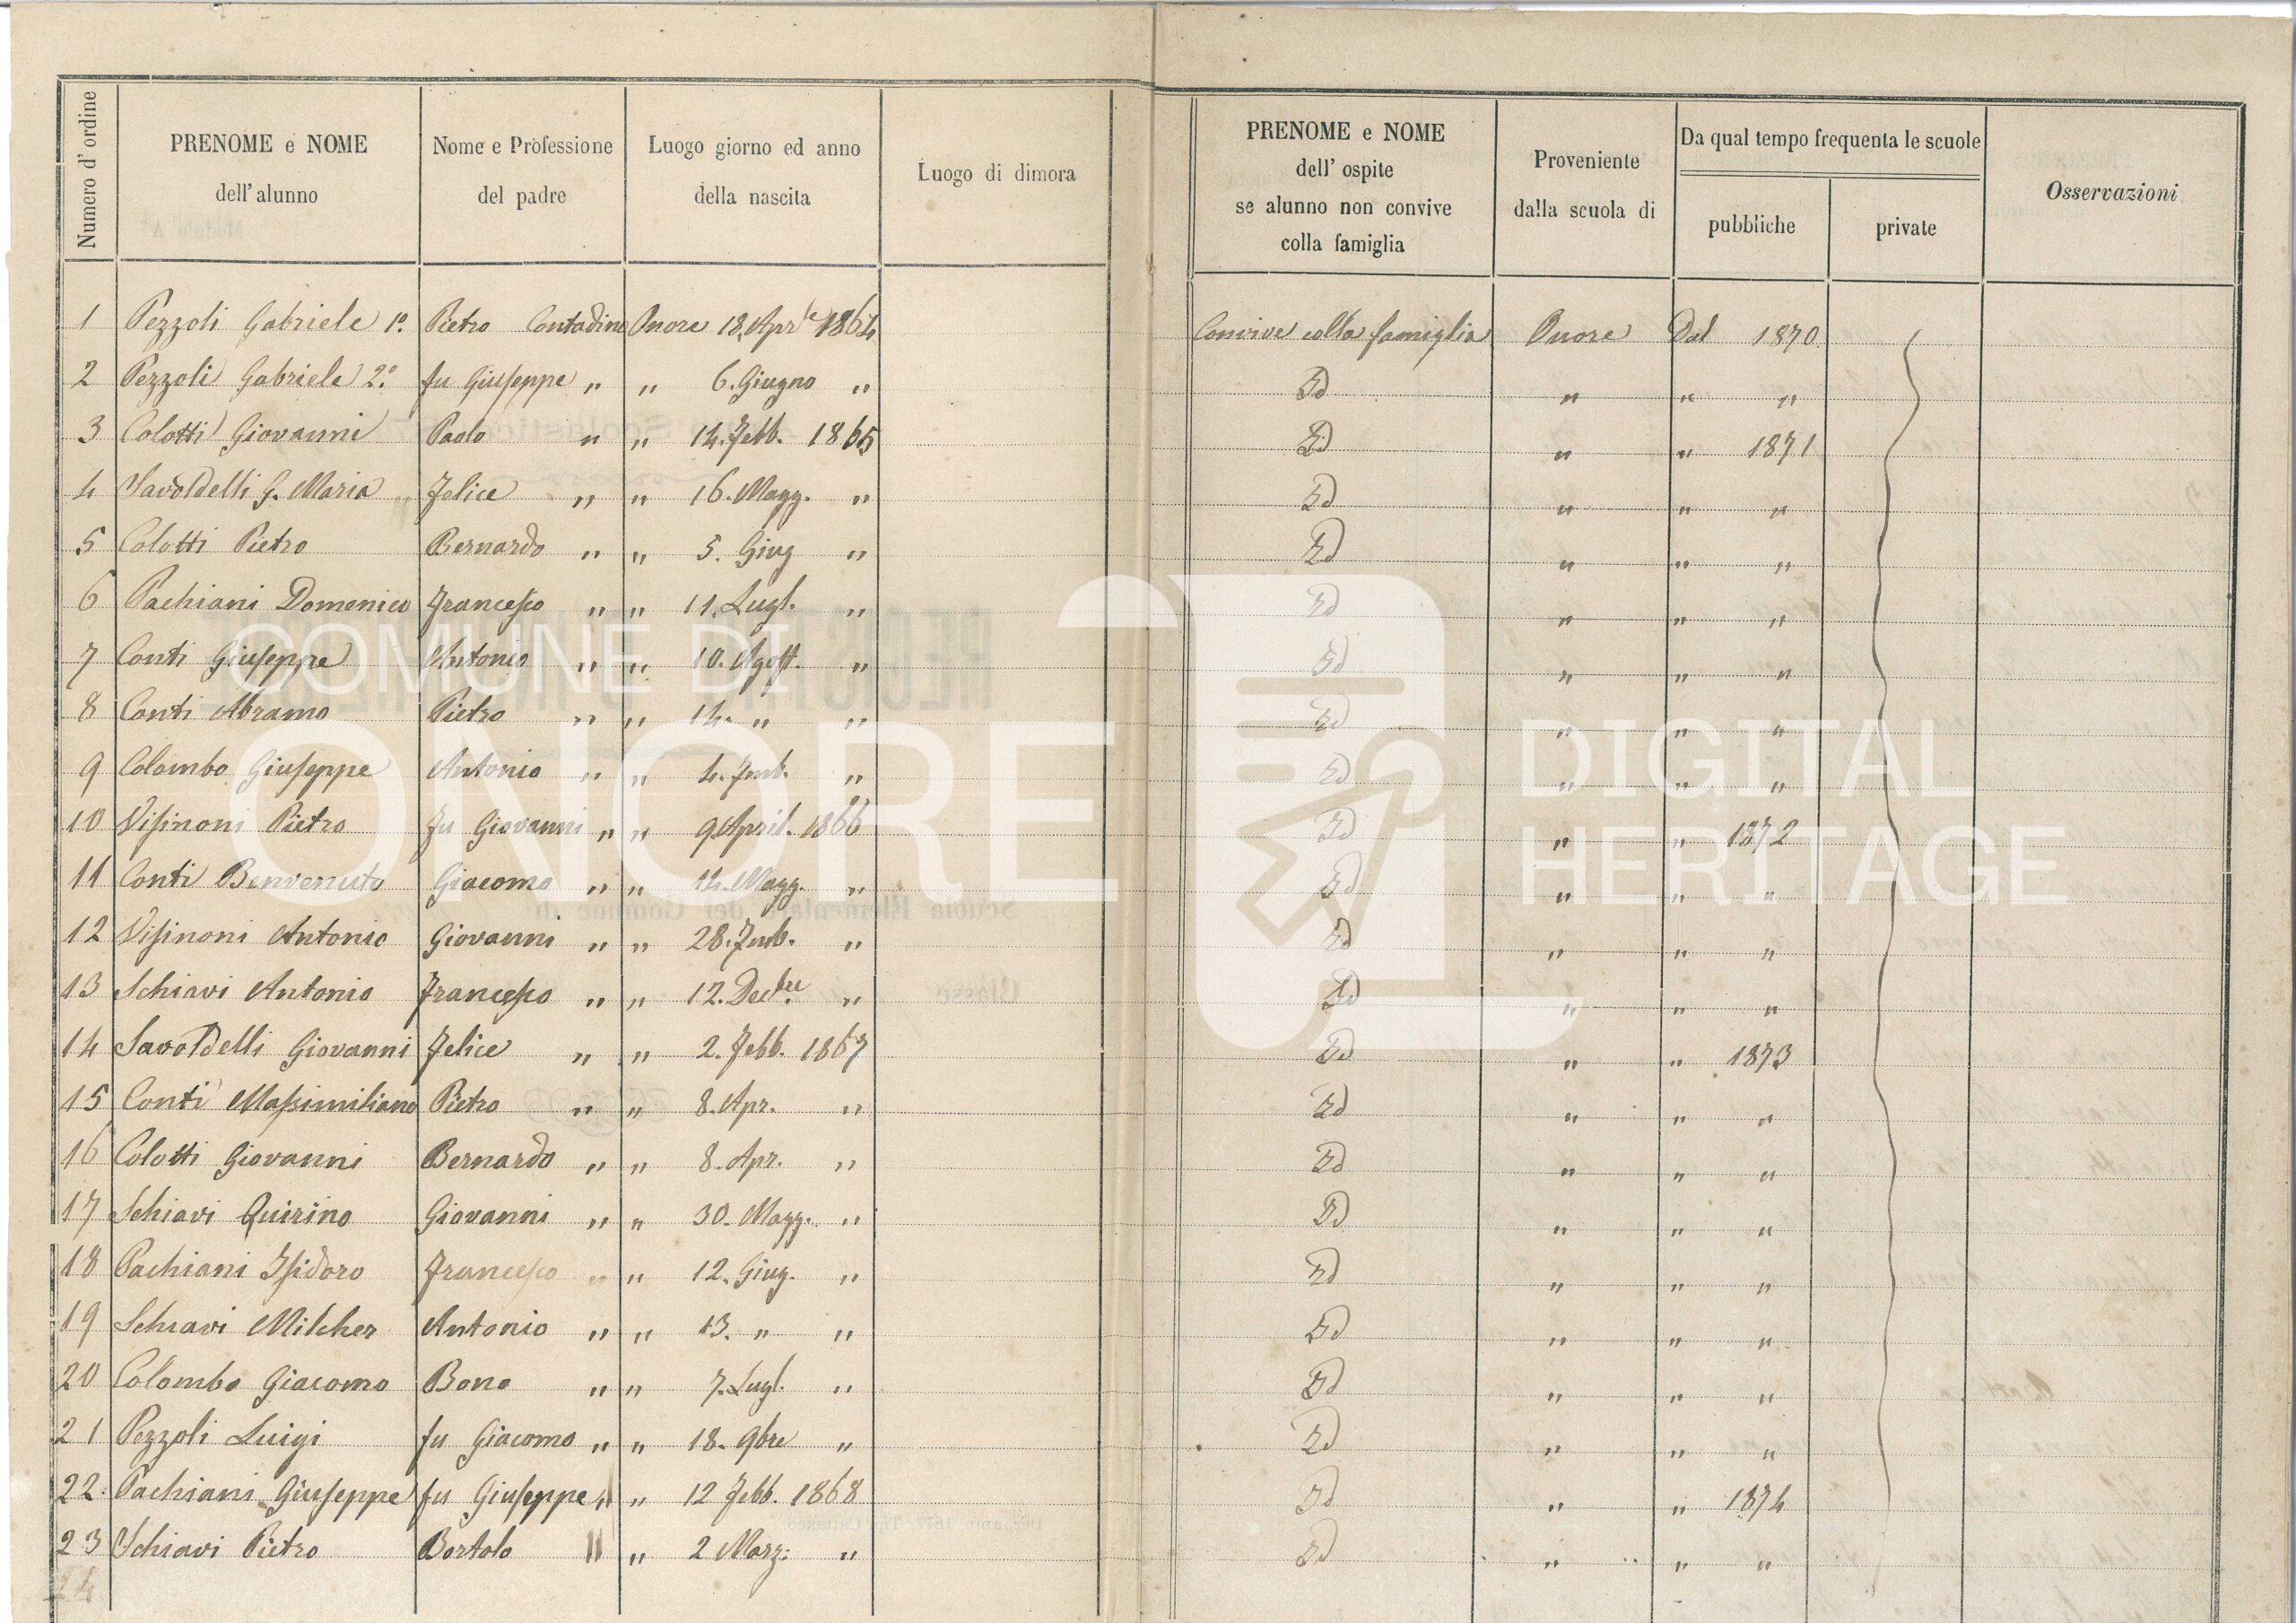 Numero d'ordine
PRENOME e NOME
dell'alunno
Nome e Professione
del padre
Luogo giorno ed anno
della nascita
Luogo di dimora
PRENOME e NOME
dell'ospite
se alunno non convive
colla famiglia
Proveniente
dalla scuola di
Da qual tempo frequenta le scuole
pubbliche
private
Osservazioni
1 Pezzoli Gabriele 1º. Pietro Contadino Onore 18. Apr.le 1864 Convive colla famiglia Onore Dal 1870
2 Pezzoli Gabriele 2º. fu Giuseppe " " 6. Giugno " Id " " "
3 Colotti Giovanni Paolo " " 14. Febb. 1865 Id " " 1871
4 Savoldelli G. Maria Felice " " 16. Magg. " Id " " "
5 Colotti Pietro Bernardo " " 5. Giug " Id " " "
6 Pachiani Domenico Francesco " " 11. Lugl. " Id " " "
7 Conti Giuseppe Antonio " " 10. Agost. " Id " " "
8 Conti Abramo Pietro " " 14. " " Id " " "
9 Colombo Giuseppe Antonio " " 4. " Id " " "
10 Visinoni Pietro fu Giovanni " " 9. April. 1866 Id " " 1872
11 Conti Benvenuto Giacomo " " 14. Magg. " Id " " "
12 Visinoni Antonio Giovanni " " 28. " Id " " "
13 Schiavi Antonio Francesco " " 12. " Id " " "
14 Savoldelli Giovanni Felice " " 2. Febb. 1867 Id " " 1873
15 Conti Massimiliano Pietro " " 8. Apr. " Id " " "
16 Colotti Giovanni Bernardo " " 8. Apr. " Id " " "
17 Schiavi Quirino Giovanni " " 30. Magg. " Id " " "
18 Pachiani Isidoro Francesco " " 12. Giug. " Id " " "
19 Schiavi Milcher Antonio " " 13. " " Id " " "
20 Colombo Giacomo Bono " " 7. Lugl. " Id " " "
21 Pezzoli Luigi fu Giacomo " " 18. 9bre " Id " " "
22 Pachiani Giuseppe fu Giuseppe " " 12 Febb. 1868 Id " " 1874
23 Schiavi Pietro Bortolo " " 2 Marz: " Id " " "
24
COMUNE DI
ONORE
DIGITAL
HERITAGE